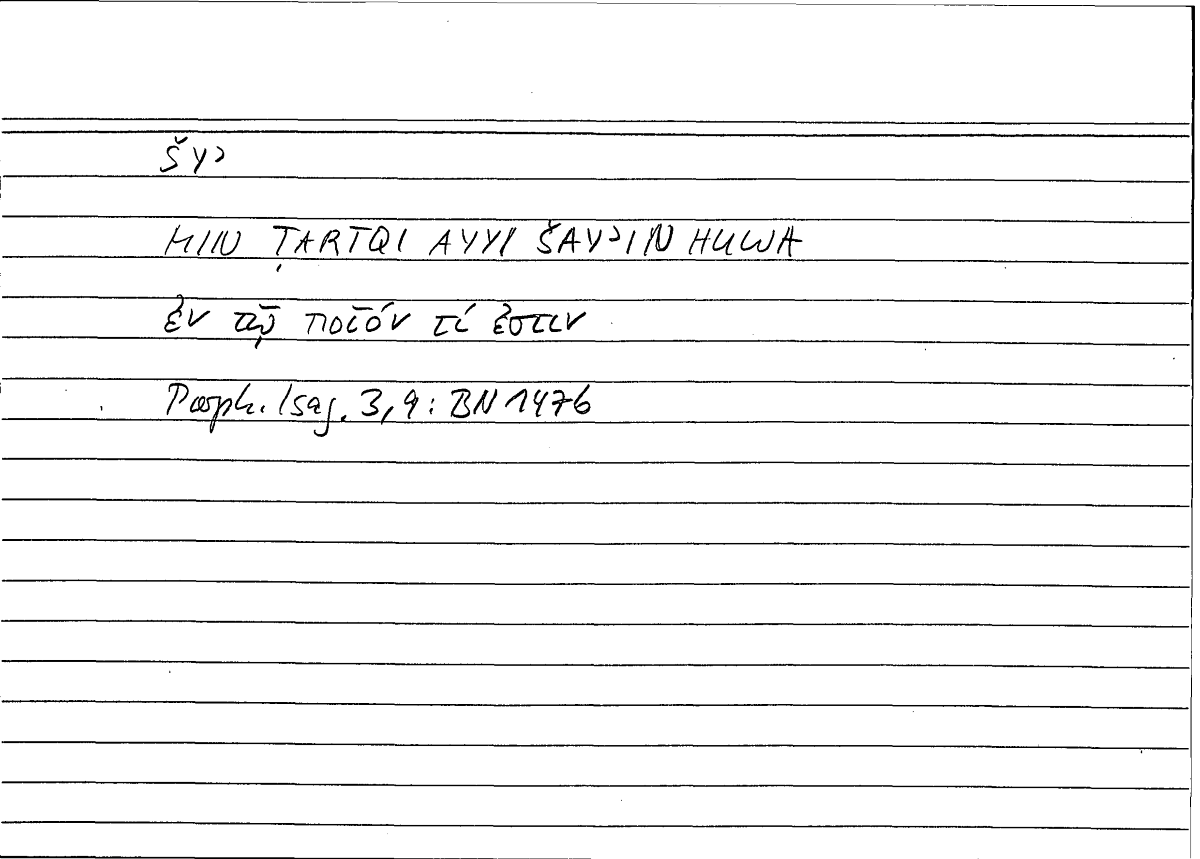 ŠYʾ
MIN ṬARTQI AYYI ŠAYʾIN HUWA
ἐν τῷ ποῖόν τί ἐστιν
Porph. Isag. 3,9: BN 1476